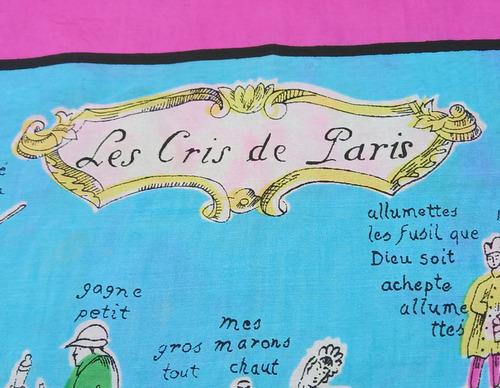 Les Cris de Paris
allumettes
les fusil que
Dieu soit
achepte
allume
ttes
gagne
petit
mes
gros marons
tout chaut